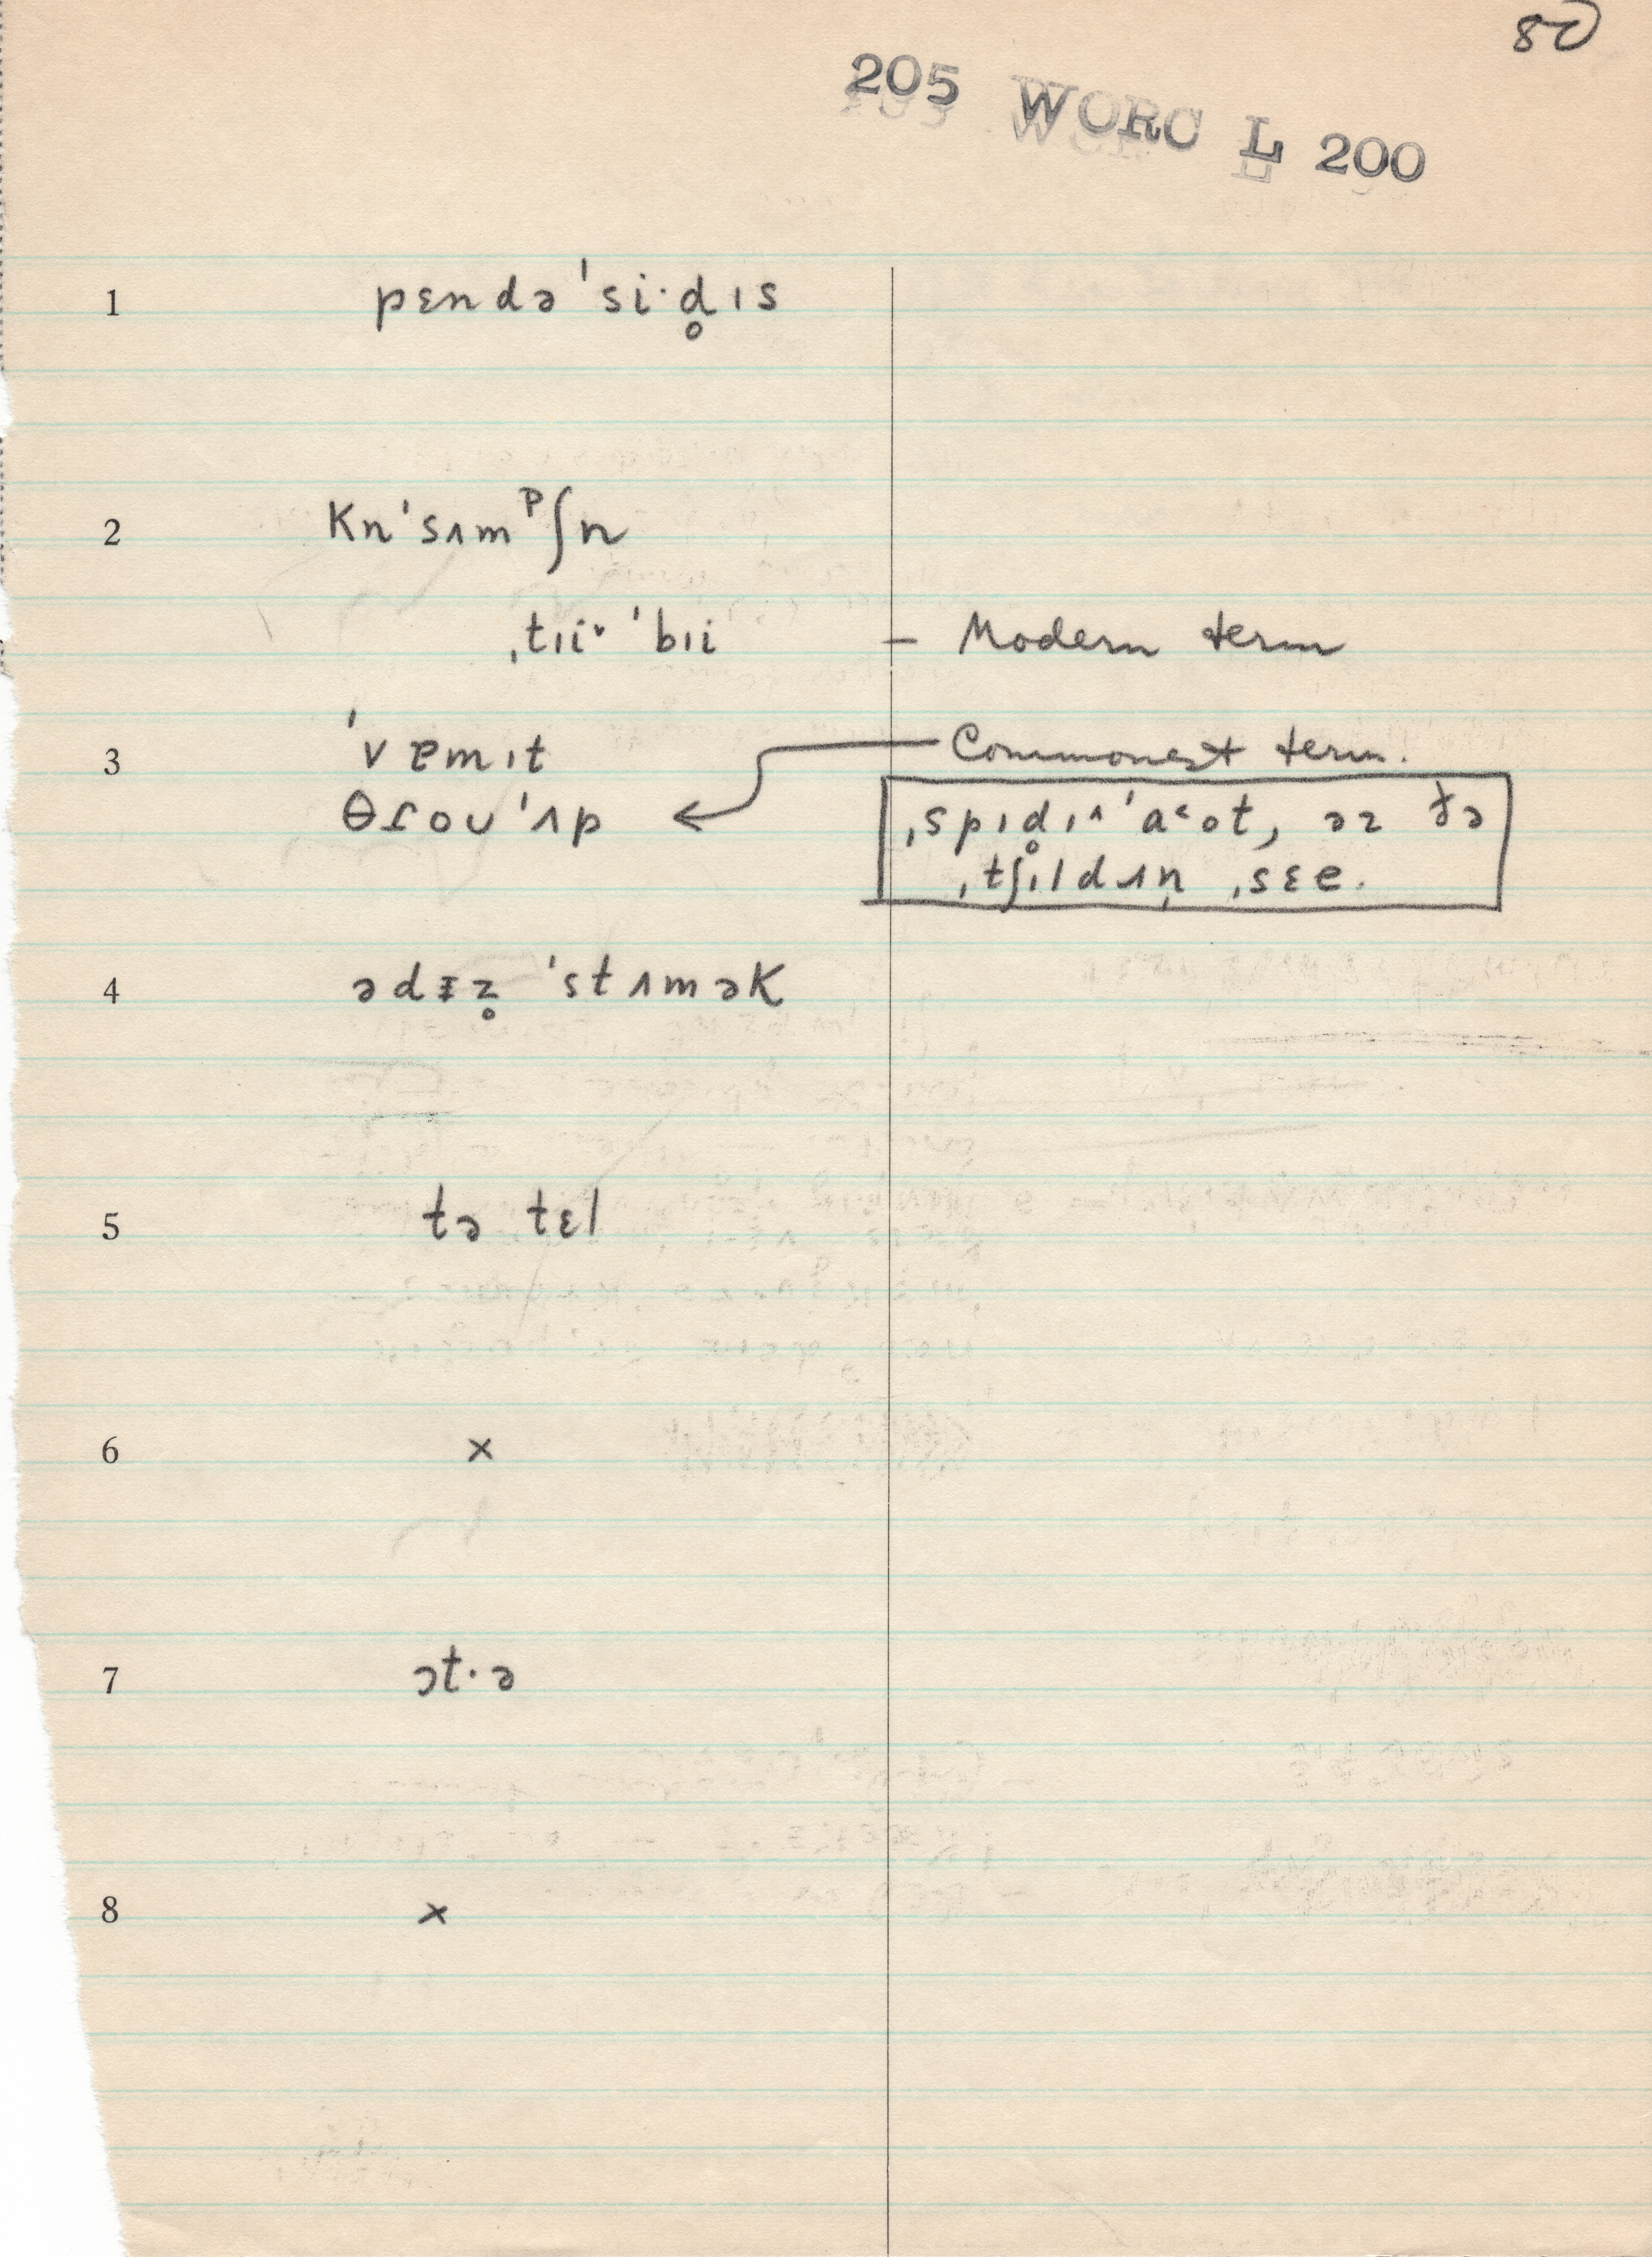 80
205 WORC L 200
1 pɛndə'si·d̥ɪs
2 kn̩'sʌmᵖʃn
ˌtɪiˇ 'bɪi – Modern term
3 'vɐmɪt Commonest term.
θɾoʊ'ʌp ˌspɪd̥ɪ^ 'aˤot, əz ðə
ˌtʃɪldʌn̩ ˌsɛe.
4 ədɪz̥ 'stʌmək
5 tə tɛl
6 ×
7 ɔt·ə
8 ×